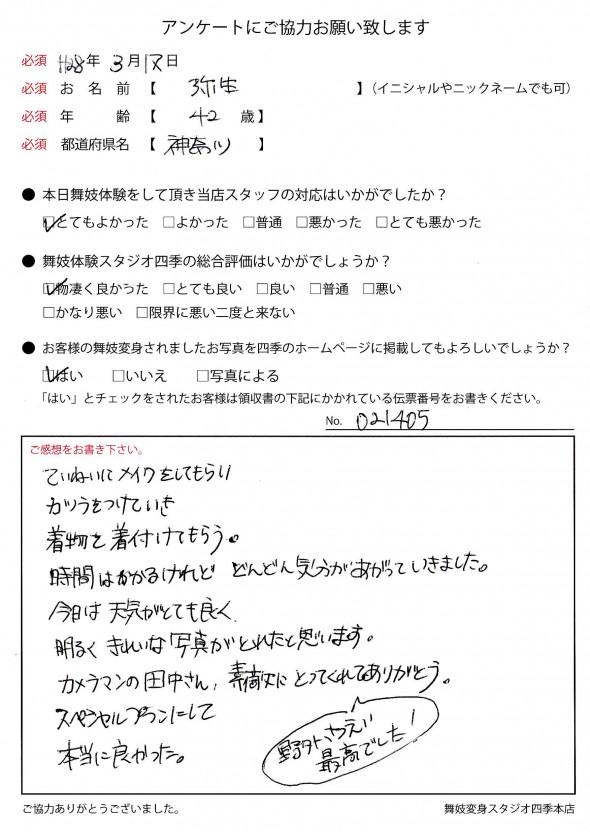 アンケートにご協力お願い致します
必須 H28年 3月17日
必須 お名前【 弥生 】(イニシャルやニックネームでも可)
必須 年齢【 42 歳】
必須 都道府県名【 神奈川 】
● 本日舞妓体験をして頂き当店スタッフの対応はいかがでしたか?
☑とてもよかった □よかった □普通 □悪かった □とても悪かった
● 舞妓体験スタジオ四季の総合評価はいかがでしょうか?
☑物凄く良かった □とても良い □良い □普通 □悪い
□かなり悪い □限界に悪い二度と来ない
● お客様の舞妓変身されましたお写真を四季のホームページに掲載してもよろしいでしょうか?
☑はい □いいえ □写真による
「はい」とチェックをされたお客様は領収書の下記にかかれている伝票番号をお書きください。
No. 021405
ご感想をお書き下さい。
ていねいにメイクをしてもらい
カツラをつけていき
着物を着付けてもらう。
時間はかかるけれど どんどん気分があがっていきました。
今日は天気がとても良く
明るくきれいな写真がとれたと思います。
カメラマンの田中さん、素敵にとってくれてありがとう。
スペシャルプランにして
本当に良かった。
野外さつえい
最高でした!
ご協力ありがとうございました。
舞妓変身スタジオ四季本店